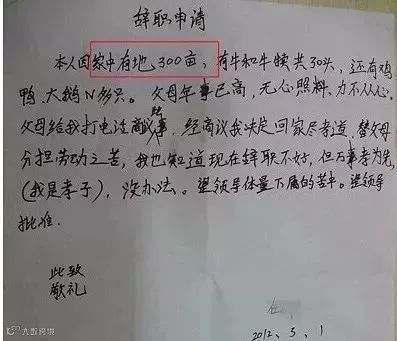 辞职申请
本人因家中有地300亩，有牛和牛犊共30头，还有鸡
鸭、大鹅N多只。父母年事已高，无心照料、力不从心。
父母给我打电话商议此事，经商议我决定回家尽孝道，替父母
分担劳动之苦，我也知道现在辞职不好，但万事孝为先，
(我是孝子)，没办法。望领导体量下属的苦中。望领导
批准.
此致
敬礼
2012、3、1
大数跨境